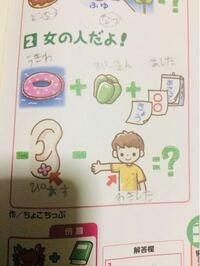 ふゆ
なつ
2 女の人だよ!
うきわ
ぴーまん
あした
きょう
ぴあす
わきした
=?
作/ちょこちっぷ
例題
解答欄